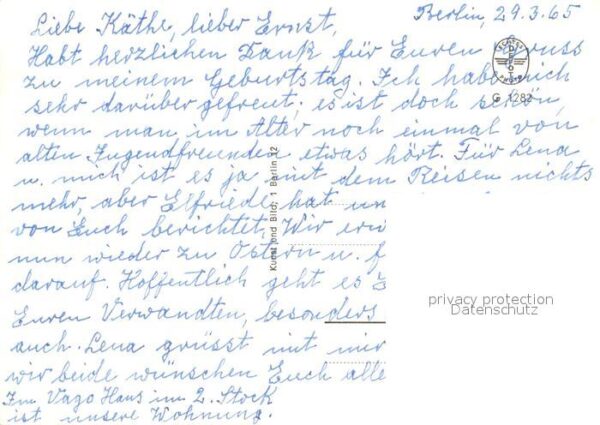 Berlin, 29.3.65
Liebe Käthe, lieber Ernst,
Habt herzlichen Dank für Euren Gruss
zu meinem Geburtstag. Ich habe mich
sehr darüber gefreut; es ist doch schön,
wenn man im Alter noch einmal von
alten Jugendfreunden etwas hört. Für Lena
u. mich ist es ja mit dem Reisen nichts
mehr, aber Elfriede hat un
von Euch berichtet. Wir erw
nun wieder zu Ostern u. f
darauf. Hoffentlich geht es E
Euren Verwandten, besonders
auch. Lena grüsst mit mir
wir beide wünschen Euch alle
Im Vago Haus im 2. Stock
ist unsere Wohnung.
G 1282
Kunst und Bild, 1 Berlin 12
privacy protection
Datenschutz